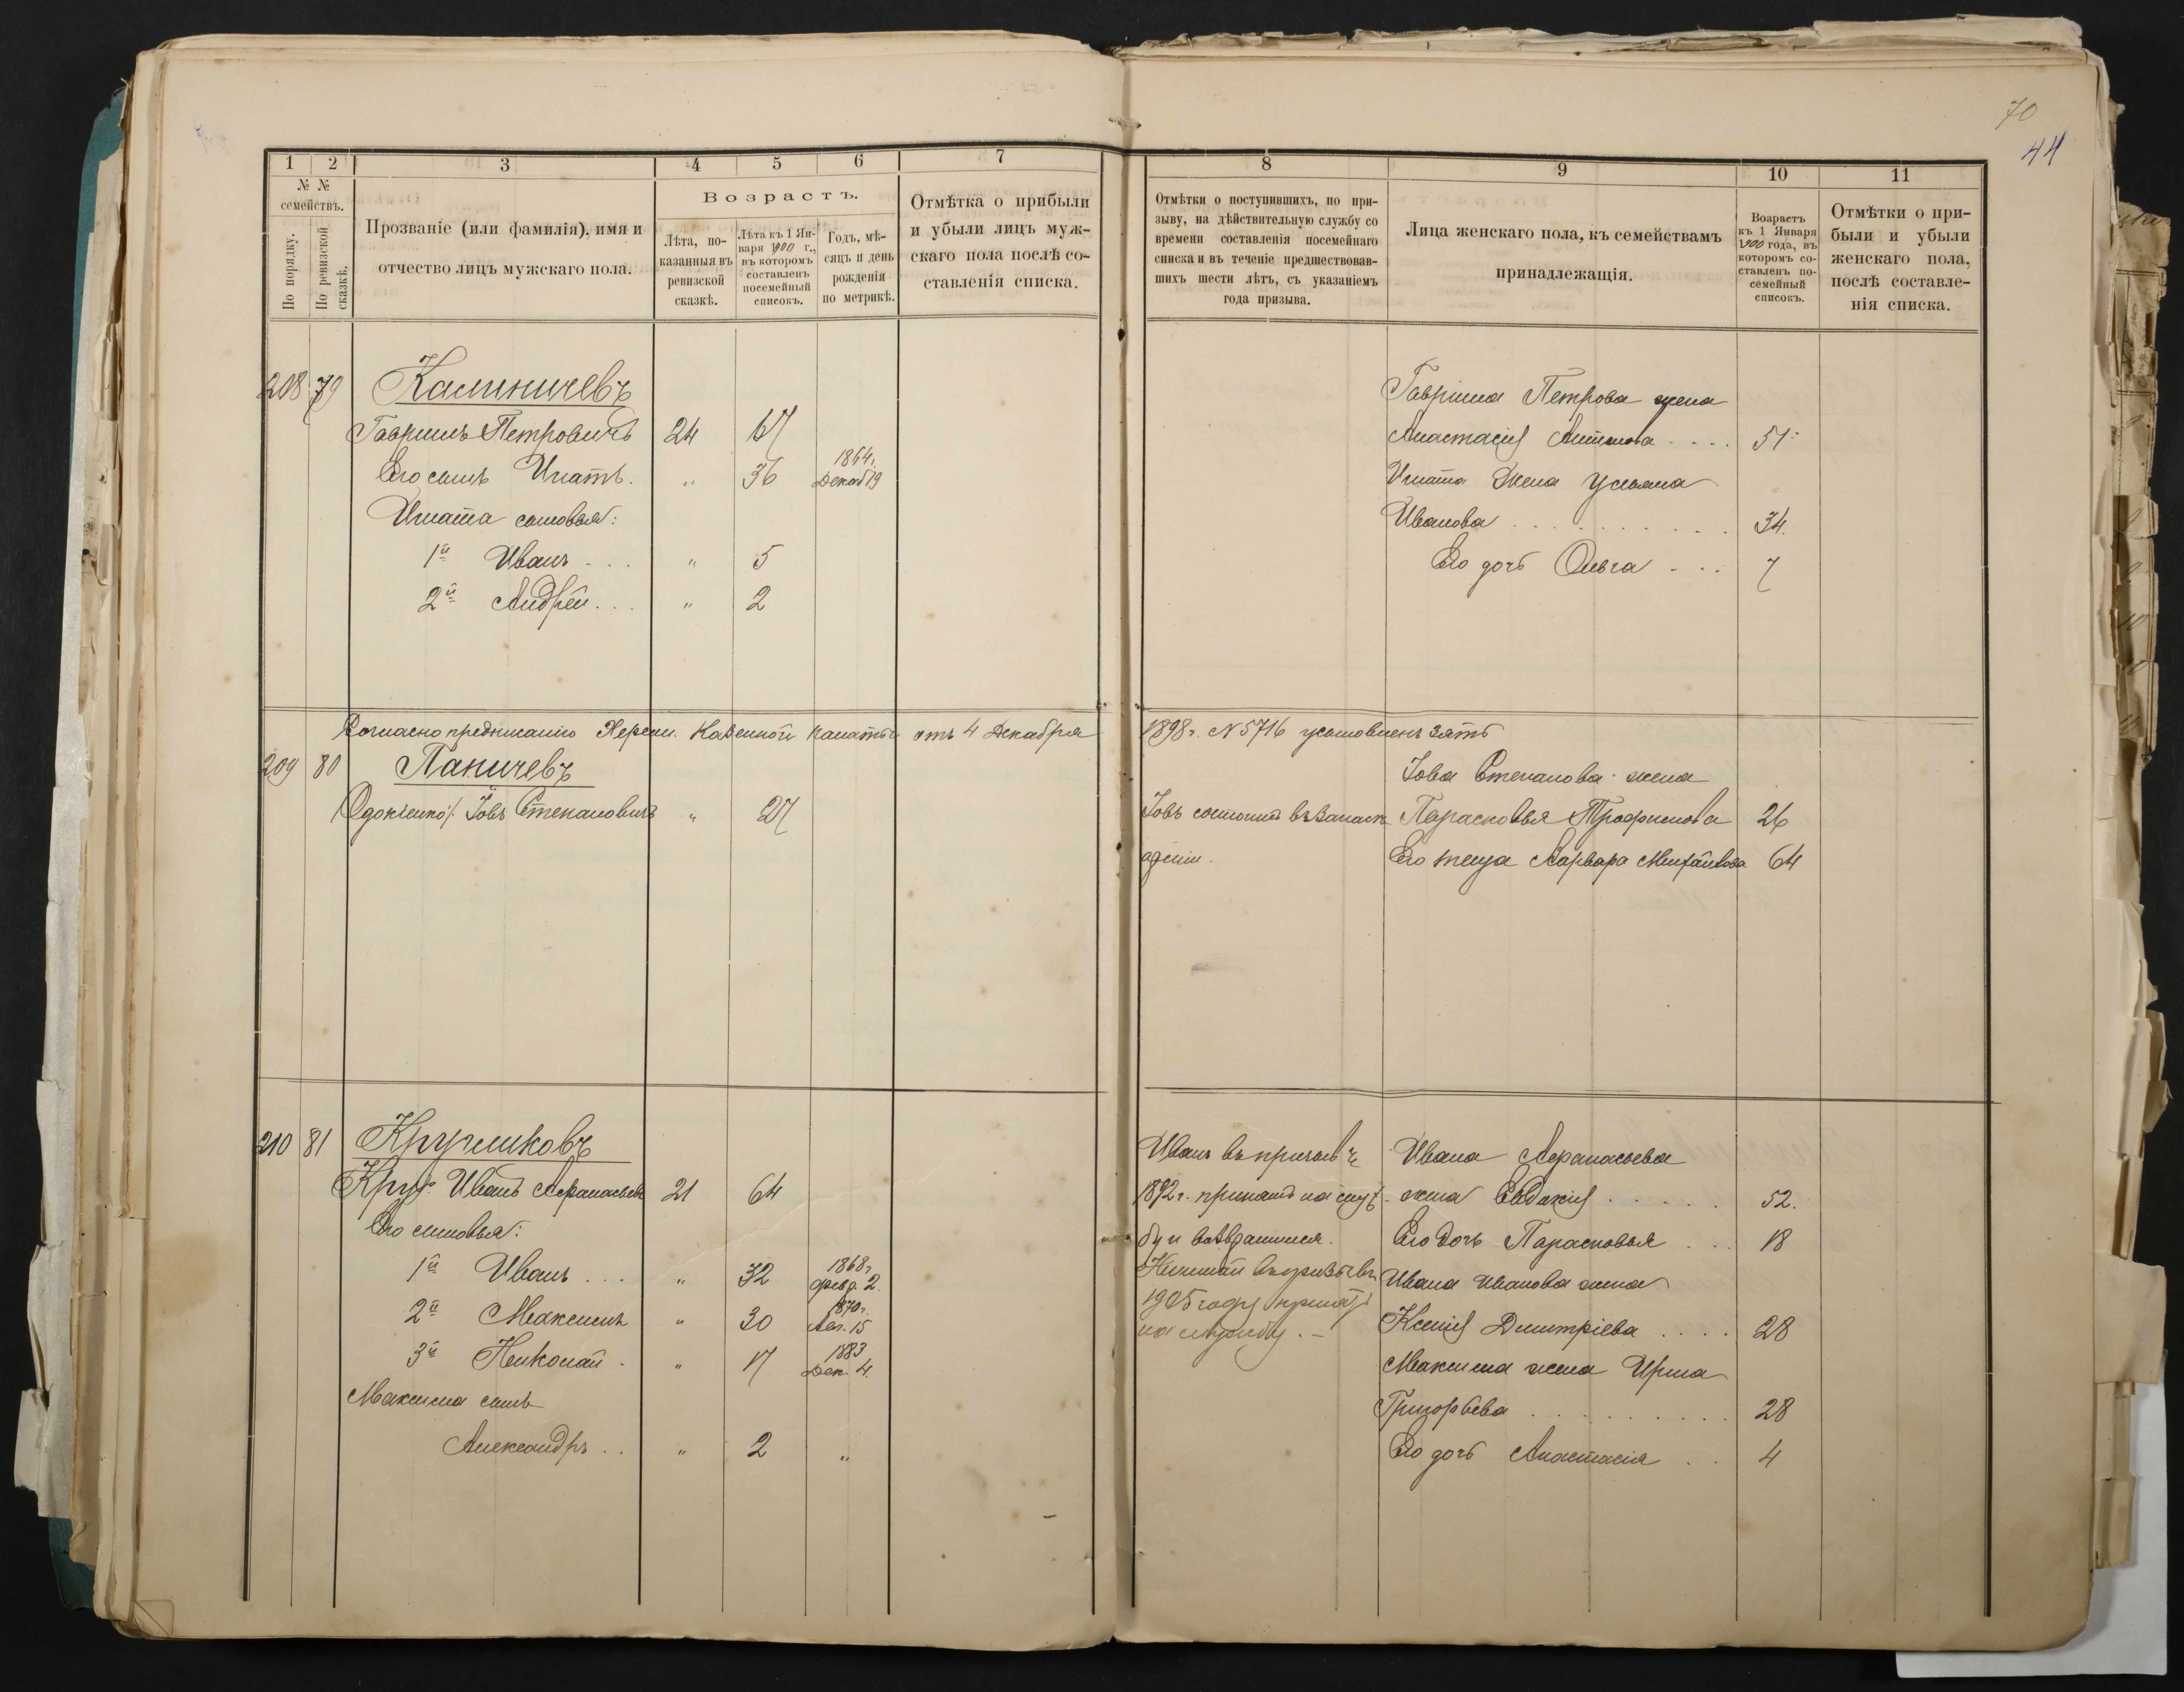 70
44
1 2 3 4 5 6 7
№ №
семействъ.
По порядку.
По ревизской сказкѣ.
Прозваніе (или фамилія), имя и
отчество лицъ мужскаго пола.
Возрастъ.
Лѣта, по-
казанныя въ
ревизской
сказкѣ.
Лѣта къ 1 Ян-
варя 1900 г.,
въ которомъ
составленъ
посемейный
списокъ.
Годъ, мѣ-
сяцъ и день
рожденія
по метрикѣ.
Отмѣтка о прибыли
и убыли лицъ муж-
скаго пола послѣ со-
ставленія списка.
208 79 Калиничевъ
Гавриилъ Петровичъ 24
Его сынъ Игнатъ. " 36 1864г. Декаб 19
Игната сыновья:
1й Иванъ - . . " 5
2й Андрей . . . " 2
Согласно предписанію Херсон. Казенной Палаты отъ 4 Декабря
209 80 Паничевъ
Іовъ Степановичъ " 27
210 81 Кругликовъ
Круг. Иванъ Афанасьевъ 21 64
Его сыновья:
1й Иванъ . . . " 32 1868г. февр. 2.
2й Максимъ " 30 1870г. Авг. 15
3й Николай - " 17 1883 Дек. 4.
Максима сынъ
Александръ . . " 2 "
8 9 10 11
Отмѣтки о поступившихъ, по при-
зыву, на дѣйствительную службу со
времени составленія посемейнаго
списка и въ теченіе предшествовав-
шихъ шести лѣтъ, съ указаніемъ
года призыва.
Лица женскаго пола, къ семействамъ
принадлежащія.
Возрастъ
къ 1 Января
1900 года, въ
которомъ со-
ставленъ по-
семейный
списокъ.
Отмѣтки о при-
были и убыли
женскаго пола,
послѣ составле-
нія списка.
Гавріила Петрова жена
Анастасія Антонова - . . . 51
Игната Жена Ульяна
Иванова . . . . . . . . . . 34.
Его дочь Ольга - . . 7
1898г. N 5716 усыновленъ зять
Іова Степанова жена
Іовъ состоитъ въ Запасѣ Парасковья Трофимова 26
арміи. Его теща Варвара Михайлова 64
Иванъ въ призывъ Ивана Афанасьева
1892г. принятъ на служ- жена Евдокія . . . . . 52.
бу и возвратился. Его дочь Парасковья . . . 18
Николай въ призывъ Ивана Иванова жена
1905 году принятъ
на службу. - Ксенія Димитріева . . . . 28
Максима жена Ирина
Григорьева . . . . . . . . . . 28
Его дочь Анастасія . . 4